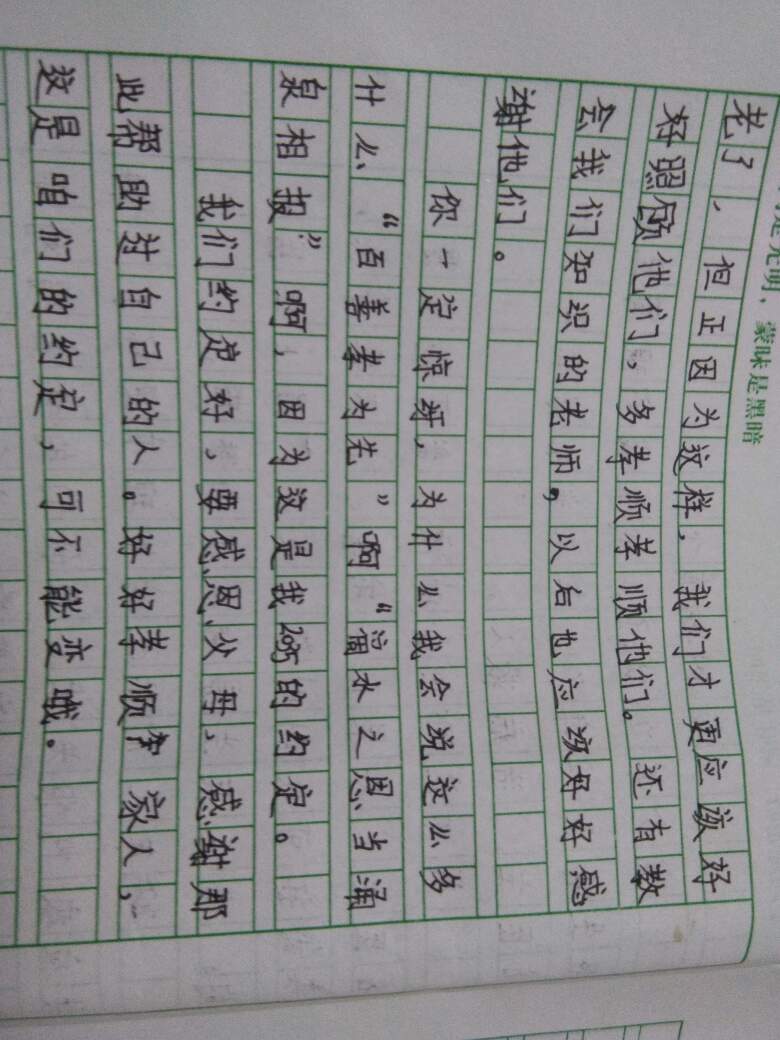 是光明，蒙昧是黑暗
老了，但正因为这样，我们才更应该好
好照顾他们，多孝顺孝顺他们。还有教
会我们知识的老师，以后也应该好好感
谢他们。
你一定惊讶，为什么我会说这么多
什么“百善孝为先”啊“滴水之恩当涌
泉相报”啊，因为这是我2035的约定。
我们约定好，要感恩父母，感谢那
此帮助过自己的人。好好孝顺家人，
这是咱们的约定，可不能变哦。